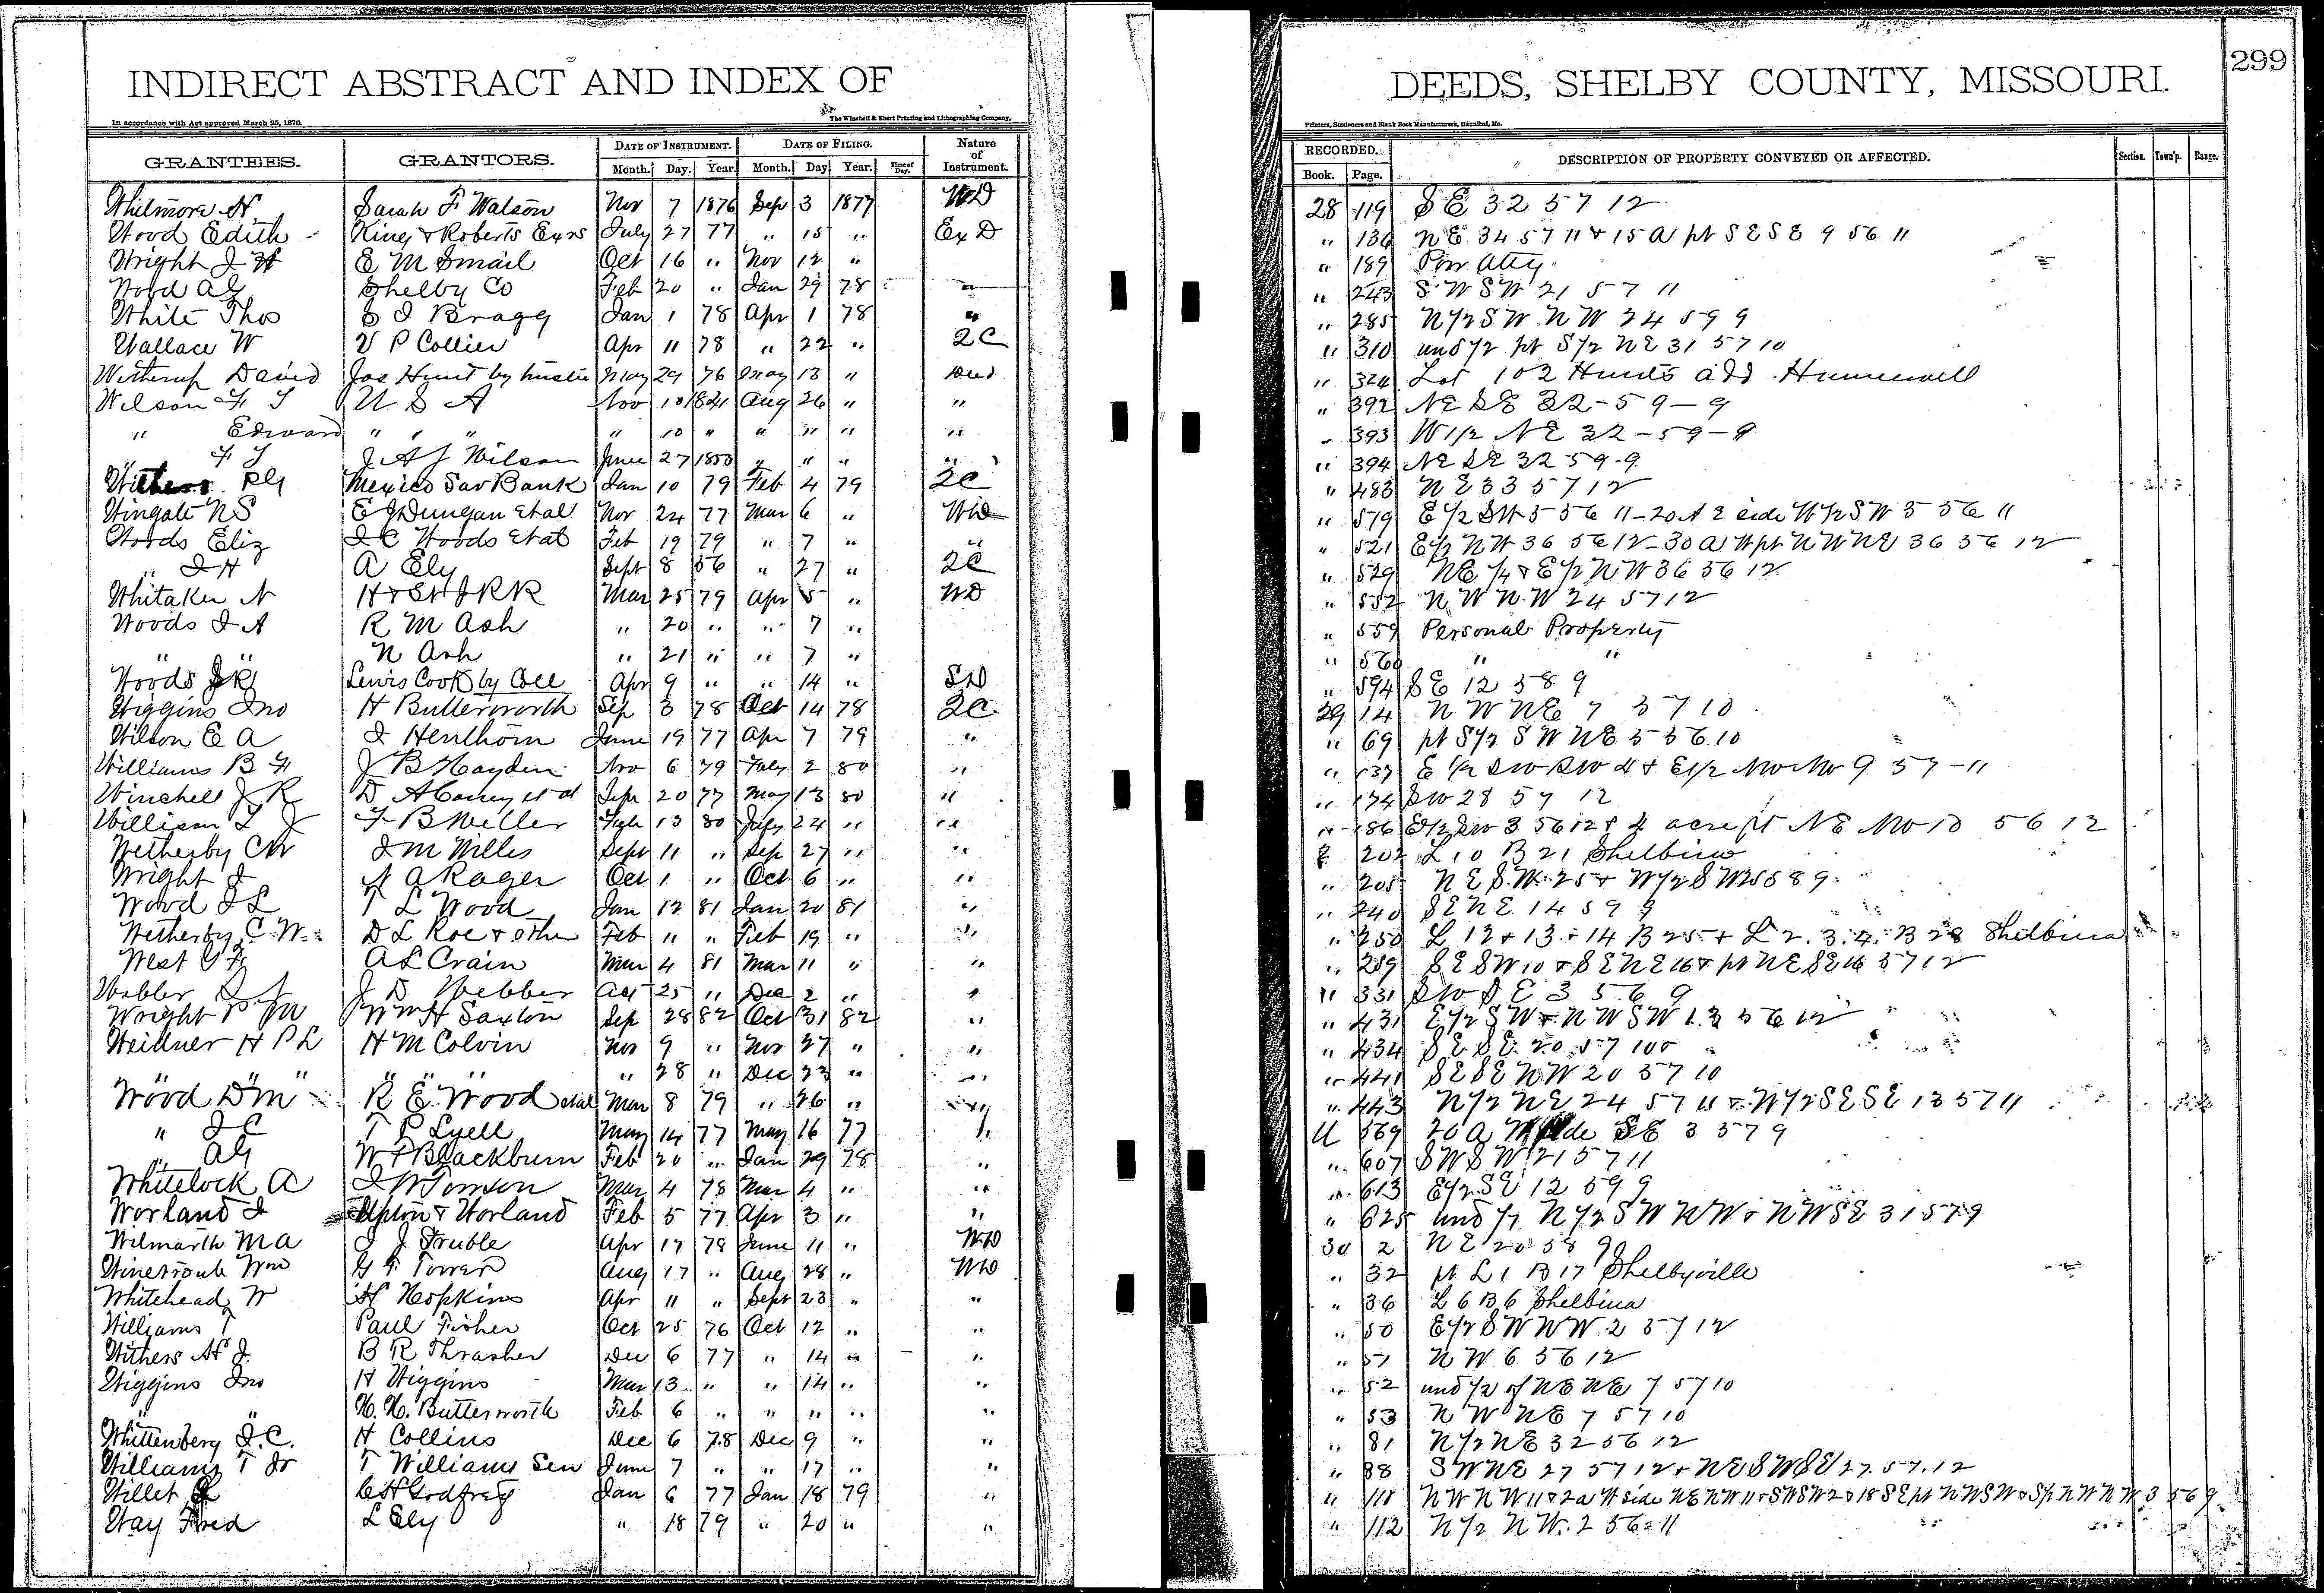 INDIRECT ABSTRACT AND INDEX OF DEEDS, SHELBY COUNTY, MISSOURI. 299
In accordance with Act approved March 25, 1870. The Winchell & Ebert Printing and Lithographing Company, Printers, Stationers and Blank Book Manufacturers, Hannibal, Mo.
GRANTEES. GRANTORS. DATE OF INSTRUMENT. DATE OF FILING. Nature of Instrument. RECORDED. DESCRIPTION OF PROPERTY CONVEYED OR AFFECTED. Section. Town'p. Range.
Month. Day. Year. Month. Day Year. Time of Day. Book. Page.
Whitmore N. Sarah F Watson Nov 7 1876 Sep 3 1877 WD 28 119 SE 32 57 12
Wood Edith King & Roberts Exrs July 27 77 " 15 " Ex D " 136 NE 34 57 11 & 15 a pt SESE 9 56 11
Wright J H E M Smail Oct 16 " Nov 12 " " 189 Pow Atty
Wood AG Shelby Co Feb 20 " Jan 29 78 " " 243 SWSW 21 57 11
White Thos J Bragg Jan 1 78 Apr 1 78 " " 285 N 1/2 SW NW 24 59 9
Wallace W V P Collier Apr 11 78 " 22 " 2C " 310 und 1/2 pt S 1/2 NE 31 57 10
Witherup David Jas Hunt by trustee May 29 76 May 13 " Deed " 324 Lot 102 Hunts add Hunnewell
Wilson F J U S A Nov 10 1841 Aug 26 " " " 392 NE SE 32-59-9
" Edward " " " " 10 " " " " " " 393 W 1/2 NE 32-59-9
" F J J A J Wilson June 27 1850 " " " " " 394 NE SE 32 59-9
Withers RG Mexico Sav Bank Jan 10 79 Feb 4 79 2C " 483 NE 33 57 12
Wingate NS E J Dungan et al Nov 24 77 Mar 6 " WD " 519 E 1/2 SW 5 56 11-20 A E side W 1/2 SW 5 56 11
Woods Eliz J C Woods et al Feb 19 79 " 7 " " " 521 E 1/2 NW 36 56 12-30 a W pt NWNE 36 56 12
" J H A Ely Sept 8 56 " 27 " 2C " 529 NE 1/4 & E 1/2 NW 36 56 12
Whitaker N H & St J RR Mar 25 79 Apr 5 " WD " 552 NW NW 24 57 12
Woods J A R M Ash " 20 " " 7 " " 559 Personal Property
" " N Ash " 21 " " 7 " " 560 " "
Woods J R Lewis Cook by Coll Apr 9 " " 14 " SD " 594 SE 12 58 9
Wiggins Jno H Butterworth Sep 3 78 Oct 14 78 2C 29 14 NW NE 7 57 10
Wilson E A J Henthorn June 19 77 Apr 7 79 " " 69 pt S 1/2 SW NE 5 56 10
Williams B F J B Hayden Nov 6 79 July 2 80 " " 137 E 1/2 SW SW 4 & E 1/2 NW NW 9 57-11
Winchell J R D A et al Sep 20 77 May 13 80 " " 174 SW 28 57 12
Willison L J F B Miller 13 80 July 24 " " " 186 E 1/2 SW 3 56 12 & 4 acre pt NE NW 10 56 12
Wetherby CW J M Willis Sept 11 " Sep 27 " " 202 L 10 B 21 Shelbina
Wright J N A Rager Oct 1 " Oct 6 " " " 205 NE SW 25 & W 1/2 SW 25 58 9
Wood J L T L Wood Jan 12 81 Jan 20 81 " " 240 SE NE 14 59 9
Wetherby C W D L Roe & other Feb 11 " Feb 19 " " " 250 L 12 & 13 & 14 B 25 & L 2. 3. 4. B 28 Shelbina
West G F A L Crain Mar 4 81 Mar 11 " " " 259 SE SW 10 & SE NE 16 & pt NE SE 16 57 12
J D Webber Oct 25 " Dec 2 " " " 331 SW SE 3 56 9
Wright P M Wm H Saxton Sep 28 82 Oct 31 82 " " 431 E 1/2 SW & NW SW 13 56 12
Weidner H P L H M Colvin Nov 9 " Nov 27 " " " 434 SE SE 20 57 10
" " " " " " " 28 " Dec 23 " " " 441 SE SE NW 20 57 10
Wood D M R E Wood et al Mar 8 79 " 26 " " " 443 N 1/2 NE 24 57 11 & W 1/2 SE SE 13 57 11
" J C T P Lyell May 14 77 May 16 77 " U 569 20 A side SE 3 57 9
" AG W F Blackburn Feb 20 " Jan 29 78 " " 607 SW SW 21 57 11
Whitelock A J W Tomson Mar 4 78 Mar 4 " " " 613 E 1/2 SE 12 59 9
Worland J Upton & Worland Feb 5 77 Apr 3 " " " 625 und 1/7 N 1/2 SW NW & NW SE 31 57 9
Wilmarth M A J J Truble Apr 17 78 June 11 " WD 30 2 NE 20 58 9
Winetroub Wm G F Tower Aug 17 " Aug 28 " WD " 32 pt L 1 B 17 Shelbyville
Whitehead W H Hopkins Apr 11 " Sept 23 " " " 36 L 6 B 6 Shelbina
Williams T Paul Fisher Oct 25 76 Oct 12 " " " 50 E 1/2 SW NW 2 57 12
Withers H J B R Thrasher Dec 6 77 " 14 " " " 51 NW 6 56 12
Wiggins Jno H Wiggins Mar 13 " " 14 " " " 52 und 1/2 of NE NE 7 57 10
" " H. H. Butterworth Feb 6 " " " " " " 53 NW NE 7 57 10
Whittenberg J. C. H Collins Dec 6 78 Dec 9 " " " 81 N 1/2 NE 32 56 12
Williams T Jr T Williams Sen June 7 " " 17 " " " 88 SW NE 27 57 12 & NE SW SE 27. 57. 12
Willet C H Godfrey Jan 6 77 Jan 18 79 " " 110 NW NW 11 & 2 a W side NE NW 11 & SW SW 2 & 18 SE pt NW SW & S pt NW NW 3 56 9
Way Fred L Ely " 18 79 " 20 " " " 112 N 1/2 NW 2 56 11